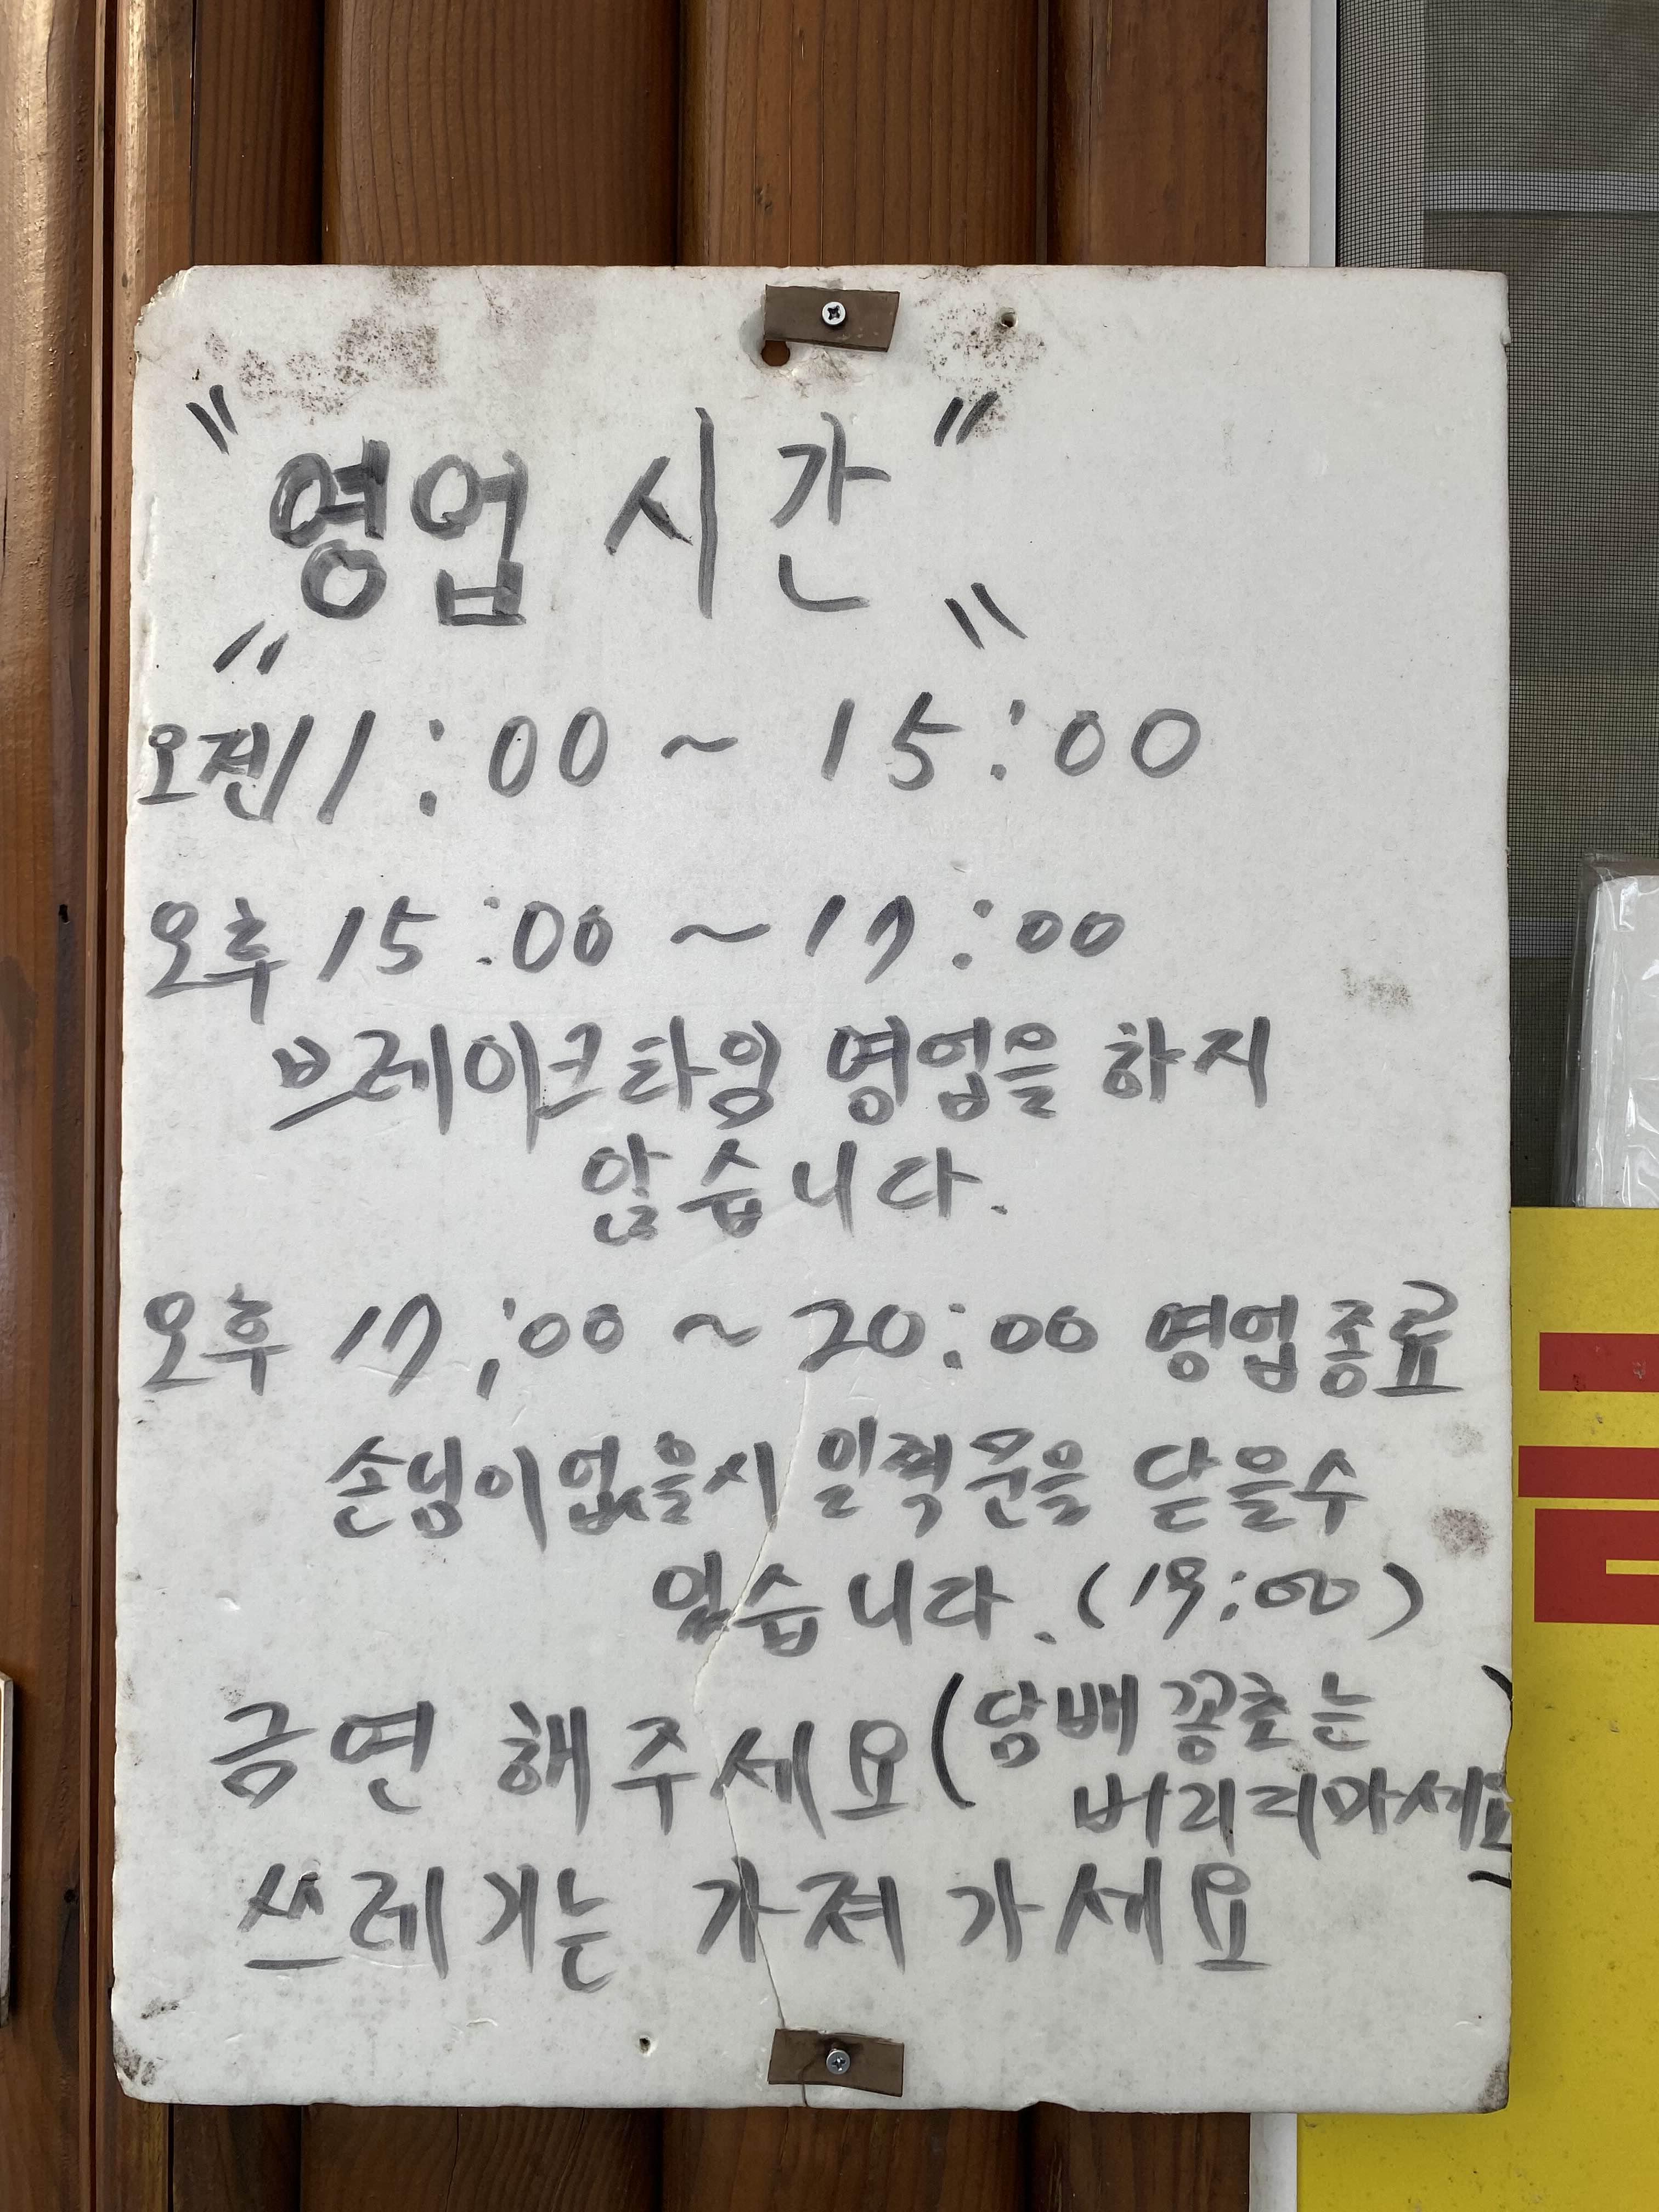 "영업 시간"
오전11:00 ~ 15:00
오후 15:00 ~ 17:00
브레이크타임 영업을 하지
않습니다.
오후 17:00 ~ 20:00 영업종료
손님이 없을시 일찍 문을 닫을수
있습니다.(19:00)
금연 해주세요(담배 꽁초는
버리지마세요)
쓰레기는 가져 가세요